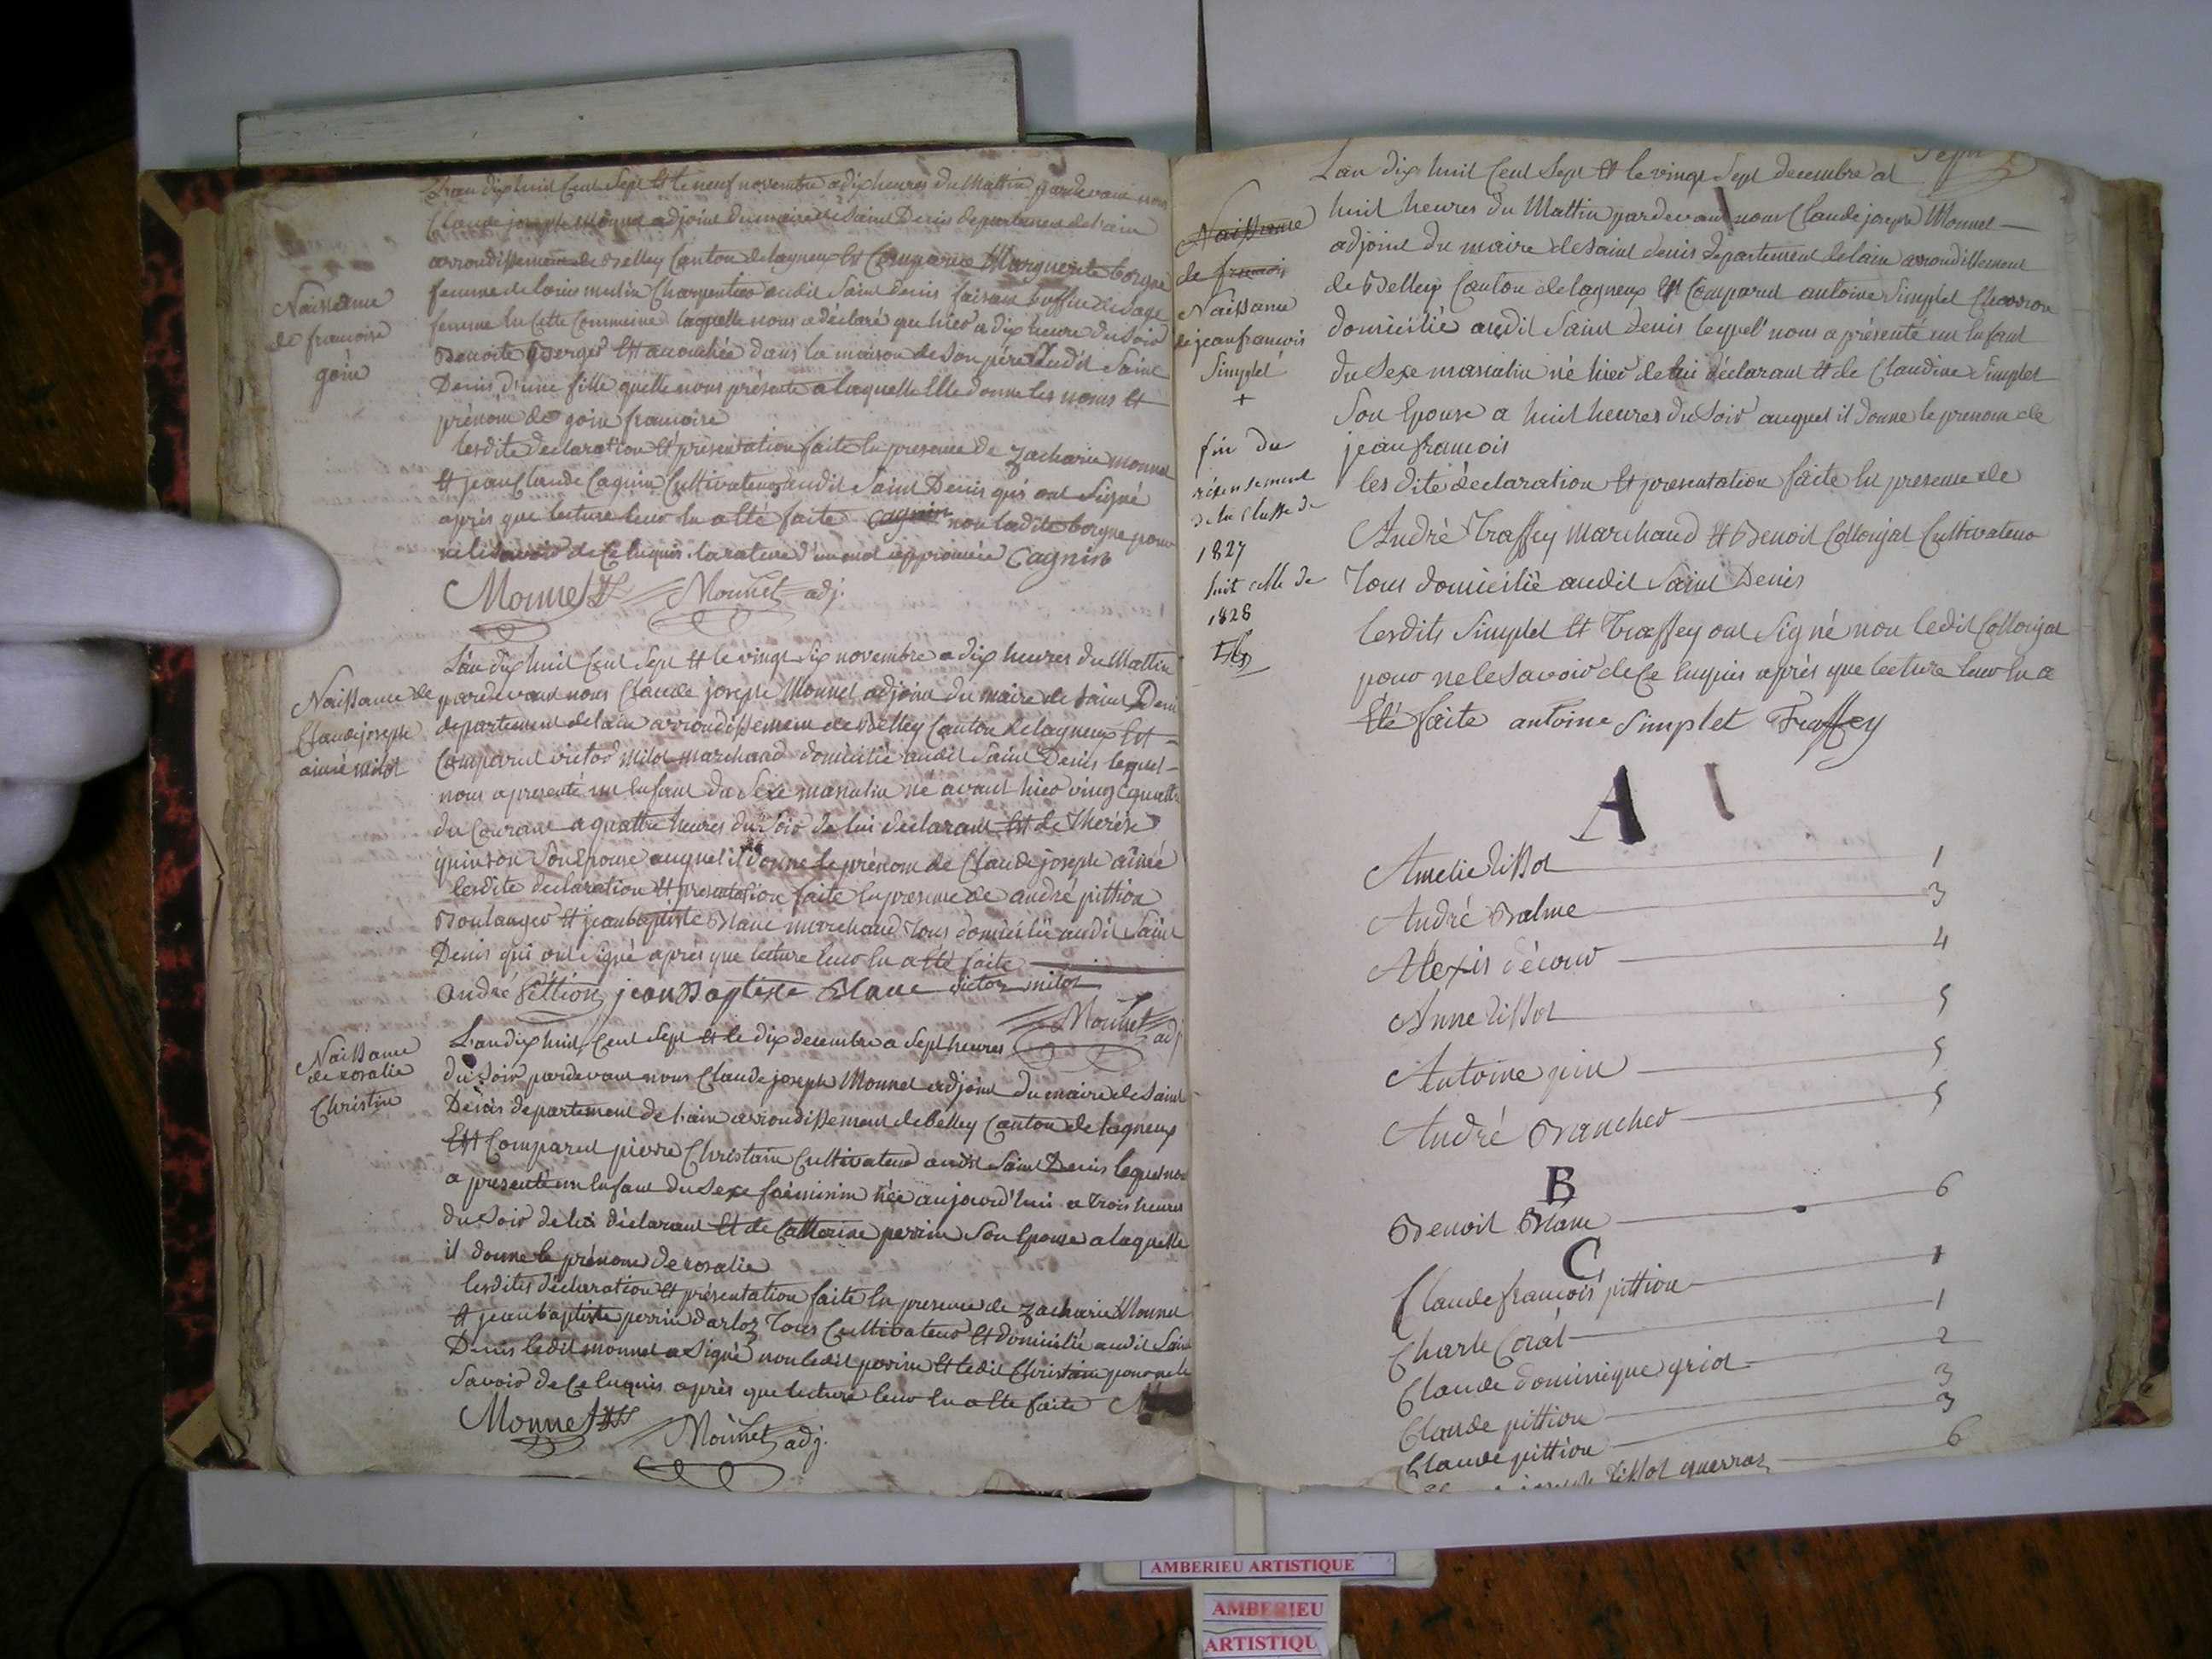 L'an dix huit Cent Sept Et le neuf novembre a dix heures du Mattin pardevant nous
Claude joseph Monnet adjoint du maire de Saint Denis departement de l'ain
arrondissement de Belley Canton de lagneux Est Comparue Marguerite borgne
femme de louis Charpentier audit Saint Denis faisant de Sage
femme En Cette Commune laquelle nous a déclaré que hier a dix heure du Soir
Benoite Est accouchée dans la maison de Son père audit Saint
Denis d'une fille quelle nous présente a laquelle Elle donne les noms Et
prénom de goin francoise
lesdite declaration Et présentation faite En presence de Zacharie monnet
Et jean Claude Cagnin Cultivateurs audit Saint Denis qui ont Signé
après que lecture leur En a Eté faite Cagnin non ladite borgne pour
ne le Savoir de Ce Enquis la rature d'un mot approuvée Cagnin
Monnet Monnet adj.
Naissance
de francoise
goin
L'an dix huit Cent Sept Et le vingt Six novembre a dix heures du Mattin
pardevant nous Claude joseph Monnet adjoint du maire de Saint Denis
departement de lain arrondissement de Belley Canton de lagneux Est
Comparut victor milot marchand domicilié audit Saint Denis lequel
nous a presenté un Enfant du Sexe masculin né avant hier vingt quattre
du Courant a quattre heures du Soir de lui declarant Et de Therése
quinson Son Epouse auquel il donne le prénom de Claude joseph aimé
lesdite declaration Et presentation faite En presence de andré pittion
Boulanger Et jean baptiste Blanc marchand Tous domicilié audit Saint
Denis qui ont Signé après que lecture leur En a Eté faite
andré Pittion jean Baptiste Blanc victor milot
Monnet adj
Naissance de
Claude joseph
aimé milot
L'an dix huit Cent Sept Et le dix decembre a Sept heures
du Soir pardevant nous Claude joseph Monnet adjoint du maire de Saint
Denis departement de l'ain arrondissement de belley Canton de lagneux
Est Comparut pierre Christain Cultivateur audit Saint Denis lequel nous
a presenté un Enfant du Sexe foéminin née aujourd'hui a trois heures
du Soir de lui déclarant Et de Catherine perrin Son Epouse a laquelle
il donne le prénom de rosalie
lesdites déclaration Et présentation faite En presence de Zacharie Monnet
Et jean baptiste perrin darloz Tous Cultivateur Et domicilié audit Saint
Denis ledit monnet a Signé non ledit perrin Et ledit Christain pour ne le
Savoir de Ce Enquis après que lecture leur En a Eté faite
Monnet Monnet adj.
Naissance
de rosalie
Christin
L'an dix huit Cent Sept Et le vingt Sept decembre at
huit heures du Mattin pardevant nous Claude joseph Monnet
adjoint du maire de Saint denis departement de lain arrondissement
de Belley Canton de lagneux Est Comparut antoine Simplet Charron
domicilié audit Saint Denis lequel nous a présenté un Enfant
du Sexe masculin né hier de lui déclarant Et de Claudine Simplet
Son Epouse a huit heures du Soir auquel il donne le prenom de
jean francois
lesdite déclaration Et presentation faite En presence de
André Traffey Marchand Et Benoit Collonjat Cultivateur
Tous domicilié audit Saint Denis
lesdits Simplet Et Traffey ont Signé non ledit Collonjat
pour ne le Savoir de Ce Enquis après que lecture leur En a
Eté faite antoine Simplet Traffey
Naissance
de francois
Naissance
de jean francois
Simplet
+
fin du
récensement
de la Classe de
1827
Suit celle de
1828
A
Amelie Tissot 1
André Balme 3
Alexis décour 4
Anne Tissot 5
Antoine juin 5
André Brancher 5
B
Benoit Blanc 6
C
Claude francois pittion 1
Charle Corat 1
Claude dominique griot 2
Claude pittion 3
Claude pittion 3
joseph Tissot querraz 6
AMBERIEU ARTISTIQUE
AMBERIEU
ARTISTIQU